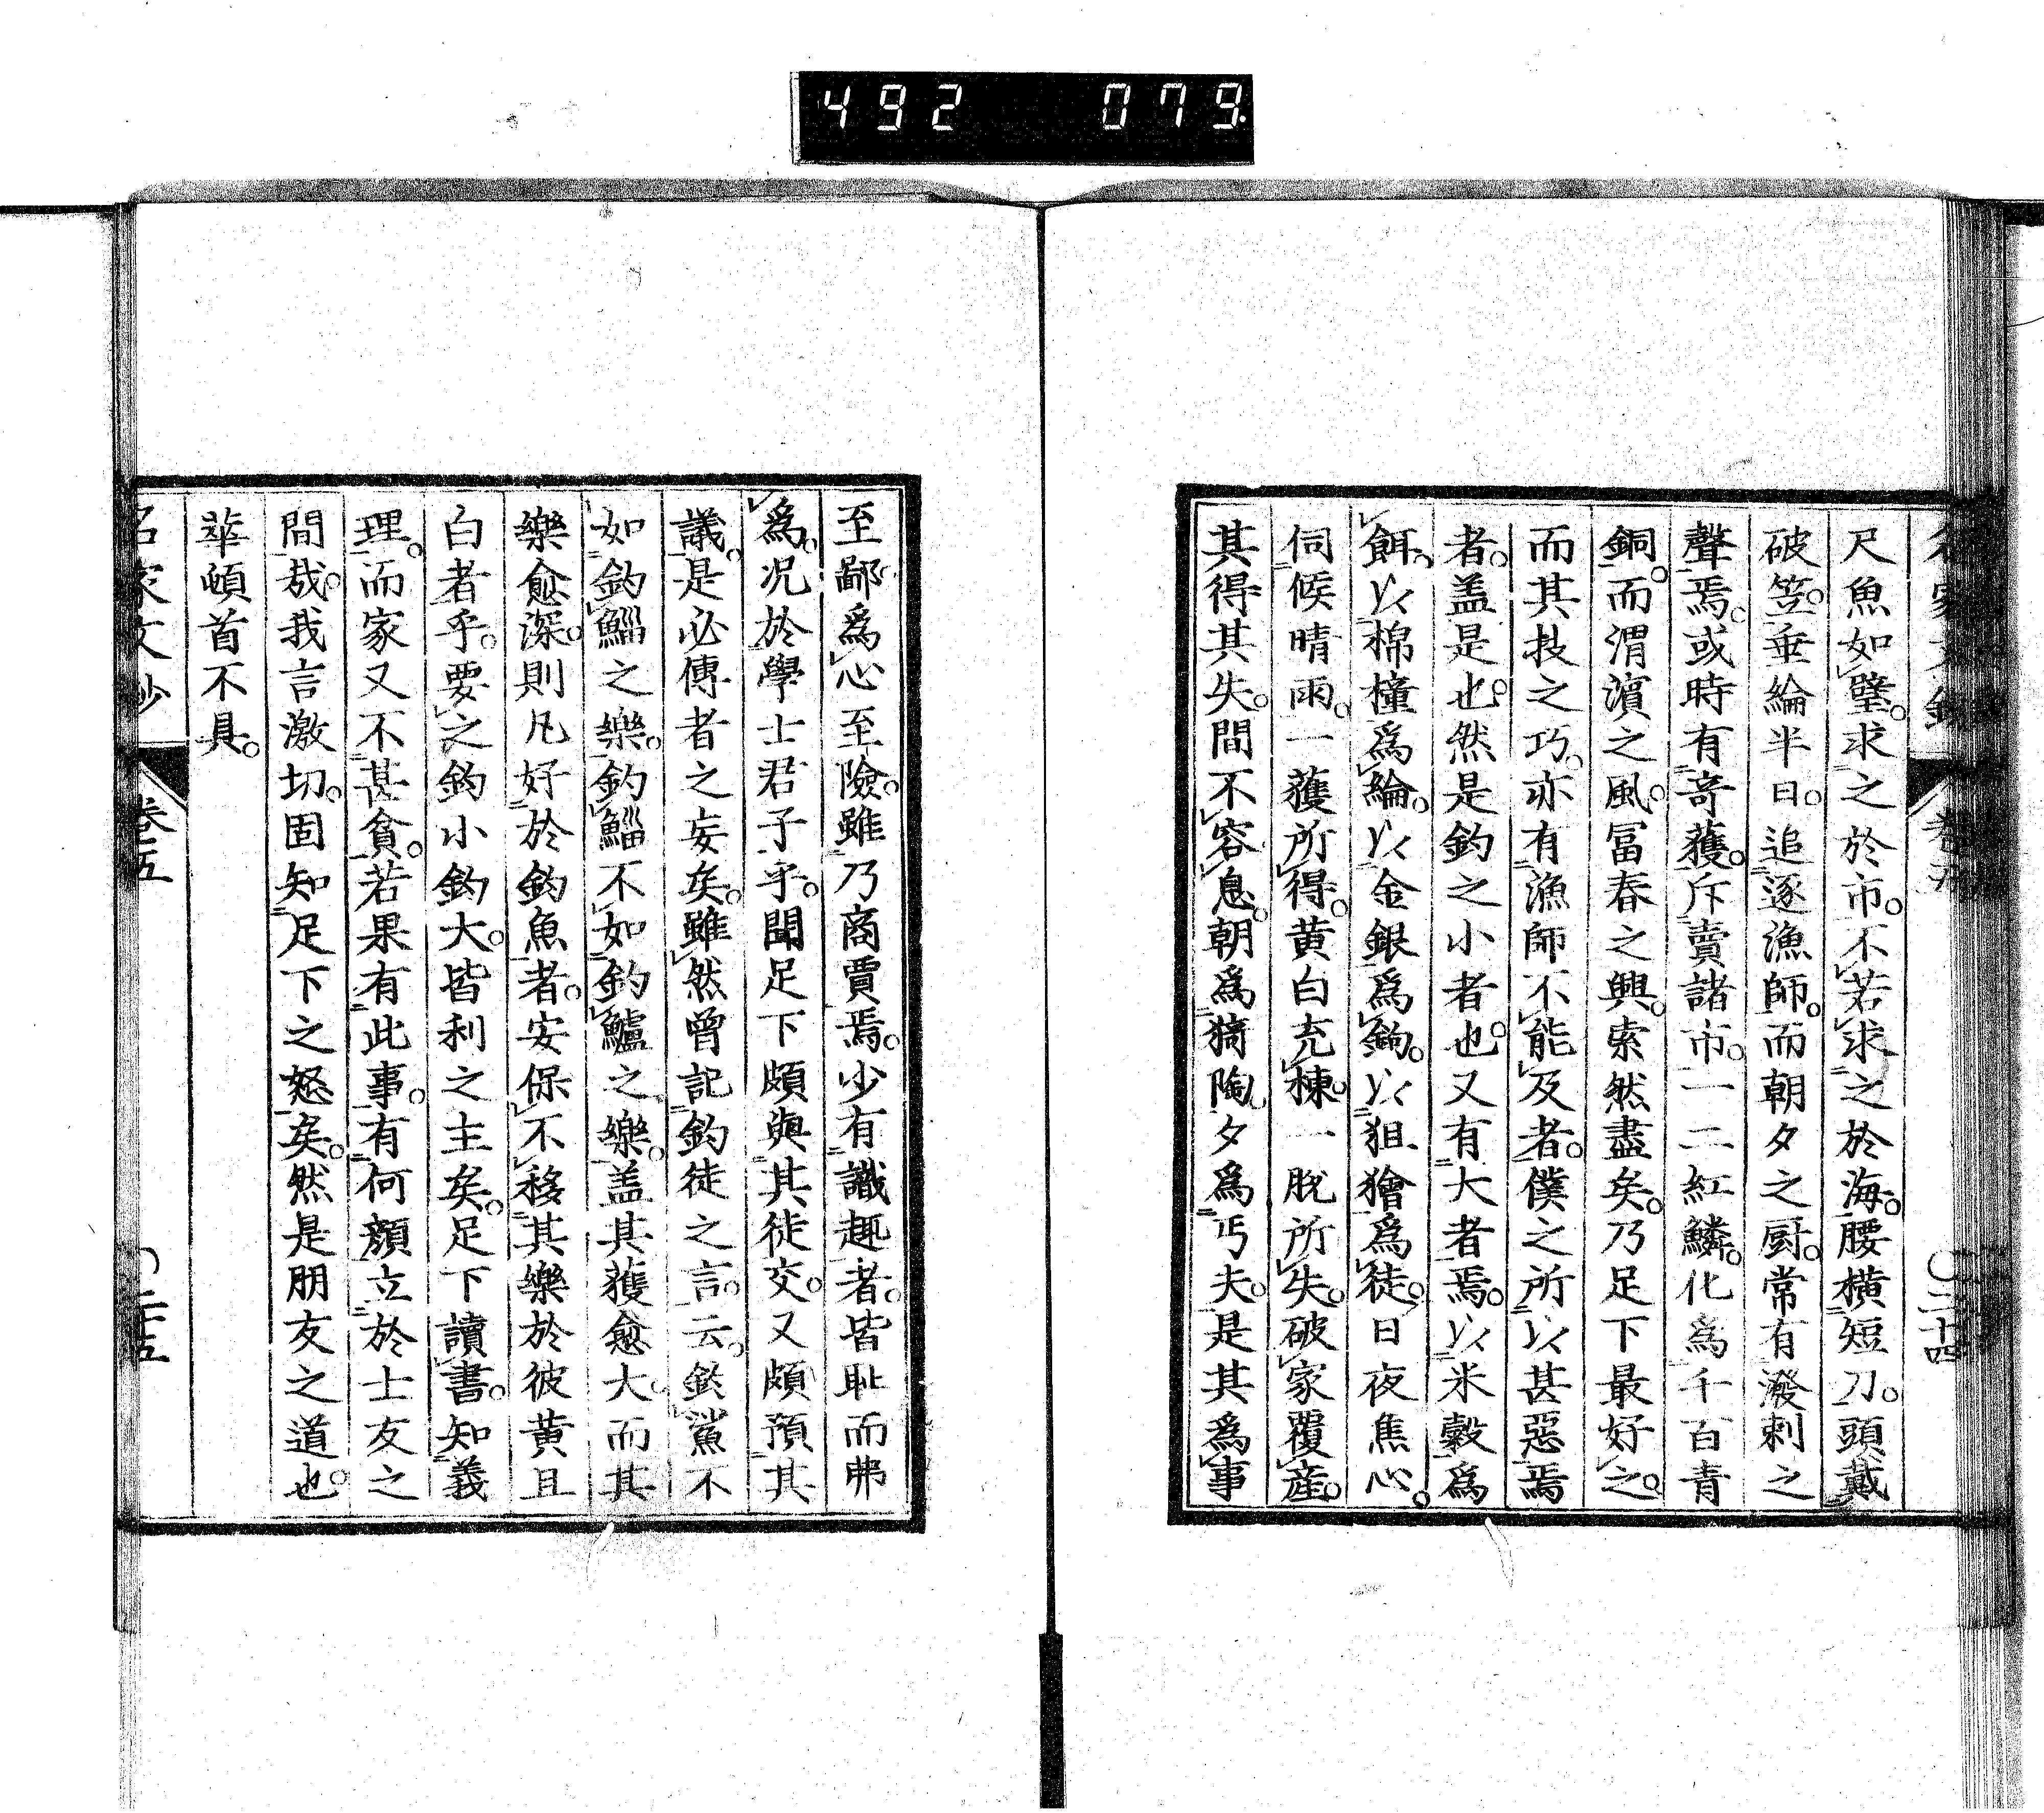 492 079
尺魚如璧。求之於市。不若求之於海。腰横短刀。頭戴
破笠。垂綸半日。追逐漁師。而朝夕之厨。常有潑剌之
聲焉。或時有竒獲。斥賣諸市。一二紅鱗。化爲千百青
銅。而渭濵之風。冨春之興。索然盡矣。乃足下最好之。
而其技之巧。亦有漁師不能及者。僕之所以甚惡焉
者。盖是也。然是釣之小者也。又有大者焉。以米穀爲
餌。以棉橦爲綸。以金銀爲鉤。以狙獪爲徒。日夜焦心。
伺候晴雨。一獲所得。黄白充棟。一脱所失。破家覆産。
其得其失。間不容息。朝爲猗陶。夕爲丐夫。是其爲事
至鄙爲心至險。雖乃商賈焉。少有識趣者。皆耻而弗
爲。况於學士君子乎。聞足下頗與其徒交。又頗預其
議。是必傳者之妄矣。雖然曾記釣徒之言。云。釣鯊不
如釣鯔之樂。釣鯔不如釣鱸之樂。盖其獲愈大。而其
樂愈深。則凡好於釣魚者。安保不移其樂於彼黄且
白者乎。要之釣小釣大。皆利之主矣。足下讀書。知義
理。而家又不甚貧。若果有此事。有何顔立於士友之
間哉。我言激切。固知足下之怒矣。然是朋友之道也。
華頓首不具。
名家文抄 卷五 二十五